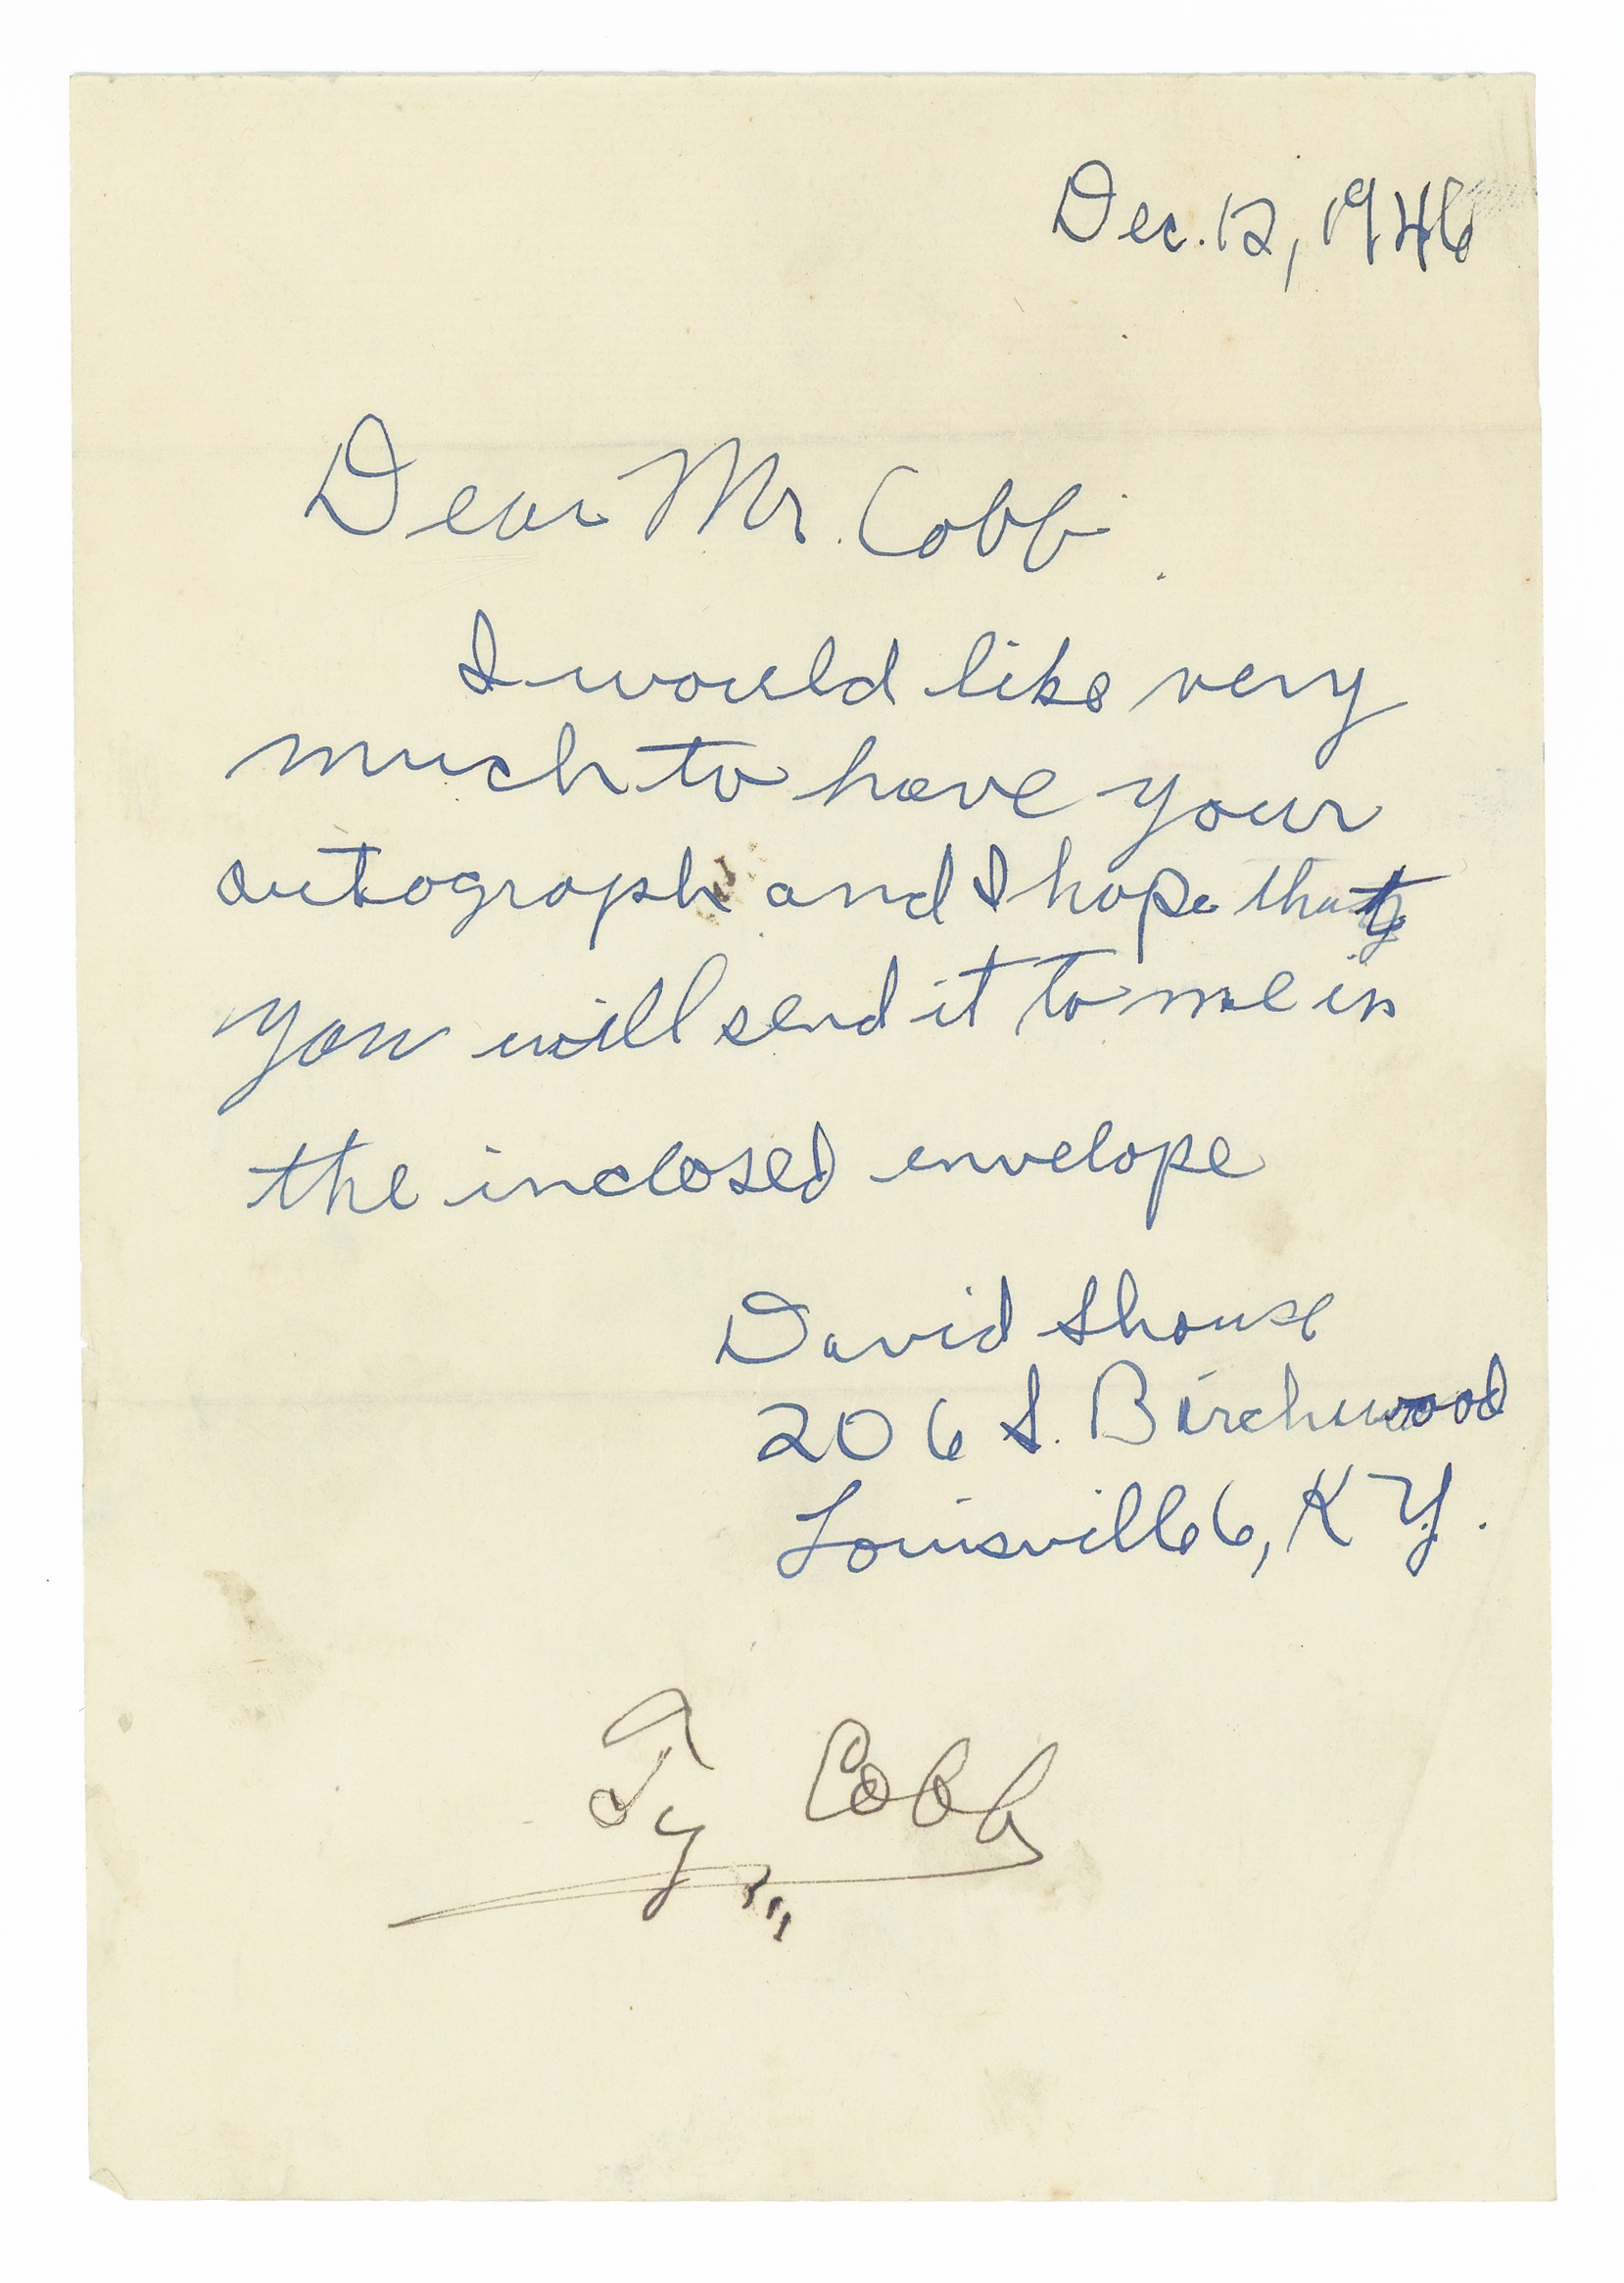 Dec. 12, 1946
Dear Mr. Cobb
I would like very
much to have your
autograph and I hope that
you will send it to me in
the inclosed envelope
David Shouse
206 S. Birchwood
Louisville 6, KY.
Ty Cobb